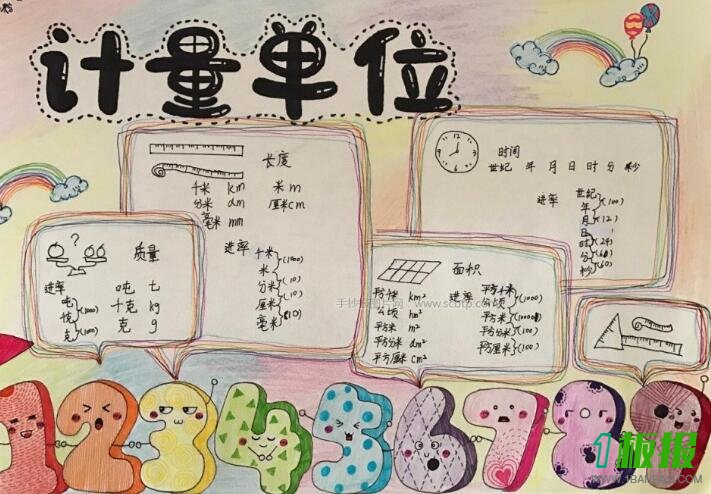 计量单位
12
3
6
9
时间
世纪 年 月 日 时 分 秒
进率
世纪
年
月
日
时
分
秒
(100)
(12)
(24)
(60)
(60)
长度
千米 km 米 m
分米 dm 厘米 cm
毫米 mm
进率
千米
米
分米
厘米
毫米
(1000)
(10)
(10)
(10)
?
质量
进率
吨 t
千克 kg
克 g
吨
克
(1000)
(1000)
面积
km²
公顷 hm²
平方米 m²
平方分米 dm²
平方厘米 cm²
进率
平方千米
公顷
平方米
平方分米
平方厘米
(100)
(100)
1 2 3 4 5 6 7 8 9
www.scbtp.com
1板报
WWW.1BANBAO.COM